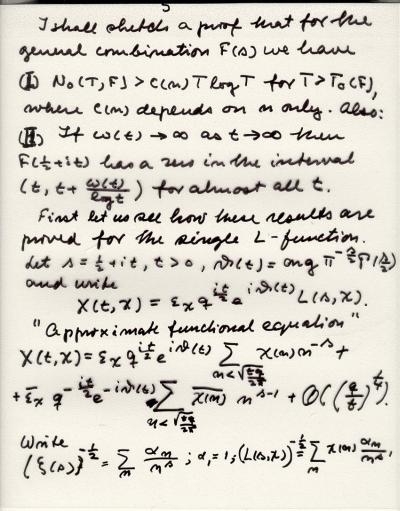 5
I shall sketch a proof that for the
general combination F(s) we have
(I) N₀(T,F) > c(n) T log T for T > T₀(F),
where c(n) depends on n only. Also:
(II) If ω(t) → ∞ as t → ∞ then
F(½+it) has a zero in the interval
(t, t + ω(t)/log t) for almost all t.
First let us see how these results are
proved for the single L-function.
Let s = ½ + it, t > 0, ϑ(t) = arg π^{-s/2} Γ(s/2)
and write
X(t,χ) = ε_χ q^{it/2} e^{iϑ(t)} L(s,χ).
"Approximate functional equation"
X(t,χ) = ε_χ q^{it/2} e^{iϑ(t)} ∑_{n<√(tq/2π)} χ(n) n^{-s} +
+ ε̄_χ q^{-it/2} e^{-iϑ(t)} ∑_{n<√(tq/2π)} \overline{χ(n)} n^{s-1} + O((q/t)^{1/4}).
Write
(ζ(s))^{-1/2} = ∑_n α_n/n^s ; α₁ = 1 ; (L(s,χ))^{-1/2} = ∑_n χ(n) α_n/n^s ,